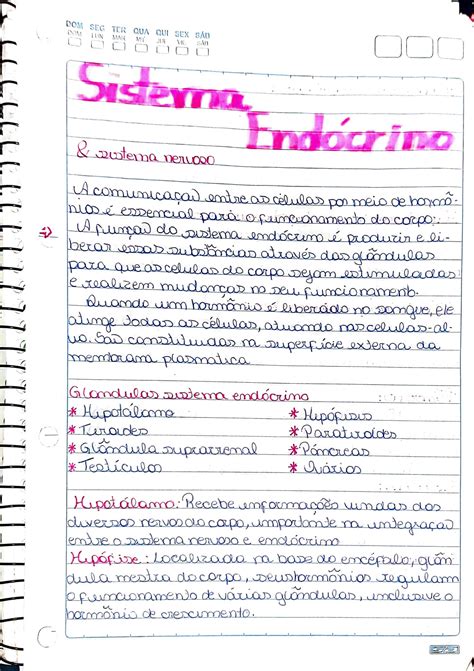 DOM SEG TER QUA QUI SEX SÁB
Sistema
Endócrino
& sistema nervoso
A comunicação entre as células por meio de hormô-
nios é essencial para o funcionamento do corpo.
A função do sistema endócrino é produzir e li-
berar essas substâncias através das glândulas
para que as celulas do corpo sejam estimuladas
e realizem mudanças no seu funcionamento.
Quando um hormônio é liberado no sangue, ele
atinge todas as células, atuando nas celulas-al-
vo. São constituidas na superfície externa da
membrana plasmatica
Glandulas sistema endócrino
* Hipotálamo * Hipófisis
* Tiroides * Paratiroides
* Glândula suprarrenal * Pâncreas
* Testículos * Ovários
Hipotálamo: Recebe informações vindas dos
diversos nervos do corpo, importante na integração
entre o sistema nervoso e endócrino
Hipófise: Localizada na base do encéfalo, glân
dula mestra do corpo, seus hormônios regulam
o funcionamento de várias glândulas, inclusive o
hormônio de crescimento.